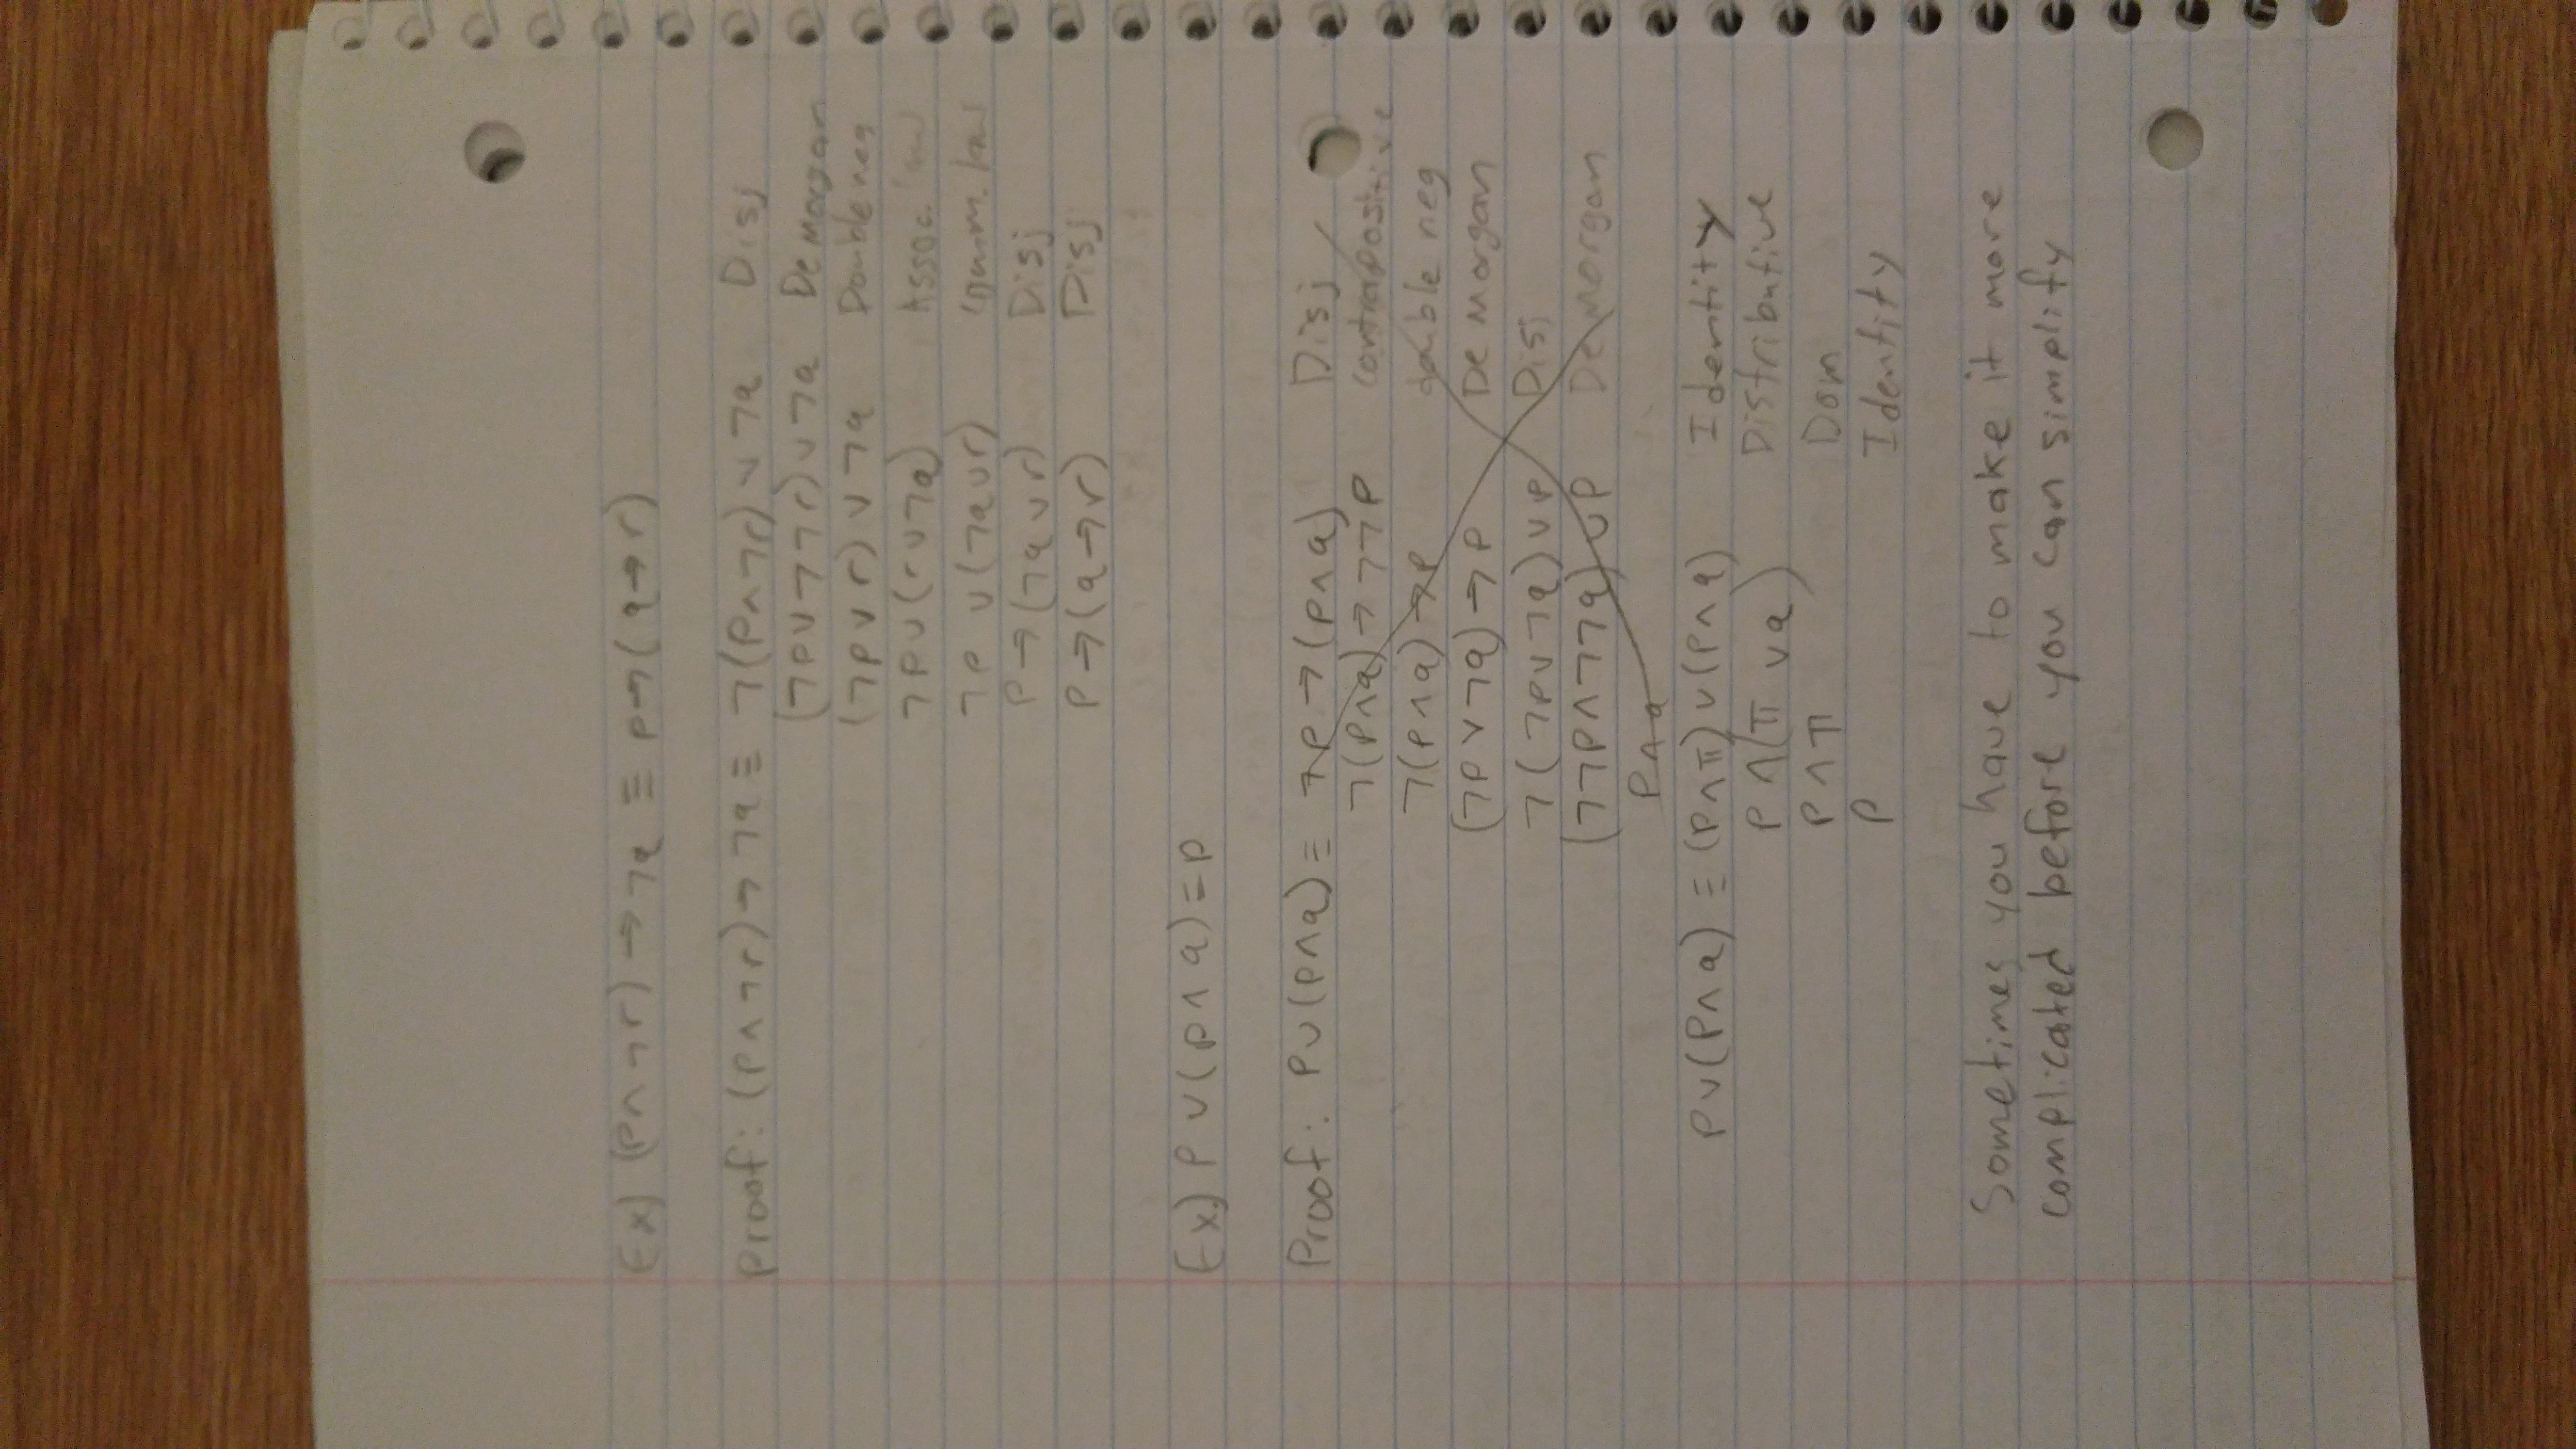 Ex) (P∧¬r)→¬q ≡ p→(q→r)
Proof: (P∧¬r)→¬q ≡ ¬(P∧¬r)∨¬q Disj
(¬P∨¬¬r)∨¬q Demorgan
(¬P∨r)∨¬q Double neg
¬P∨(r∨¬q) Assoc. law
¬P∨(¬q∨r) Comm. law
P→(¬q∨r) Disj
P→(q→r) Disj
Ex) P∨(P∧q)=P
Proof: P∨(P∧q)≡ ¬P→(P∧q) Disj
¬(P∧q)→¬¬P contrapositive
¬(P∧q)→P double neg
(¬P∨¬q)→P De morgan
¬(¬P∨¬q)∨P Disj
(¬¬P∧¬¬q)∨P Demorgan
P∧q
P∨(P∧q) ≡ (P∧T)∨(P∧q) Identity
P∧(T∨q) Distributive
P∧T Dom
P Identity
Sometimes you have to make it more
complicated before you can simplify